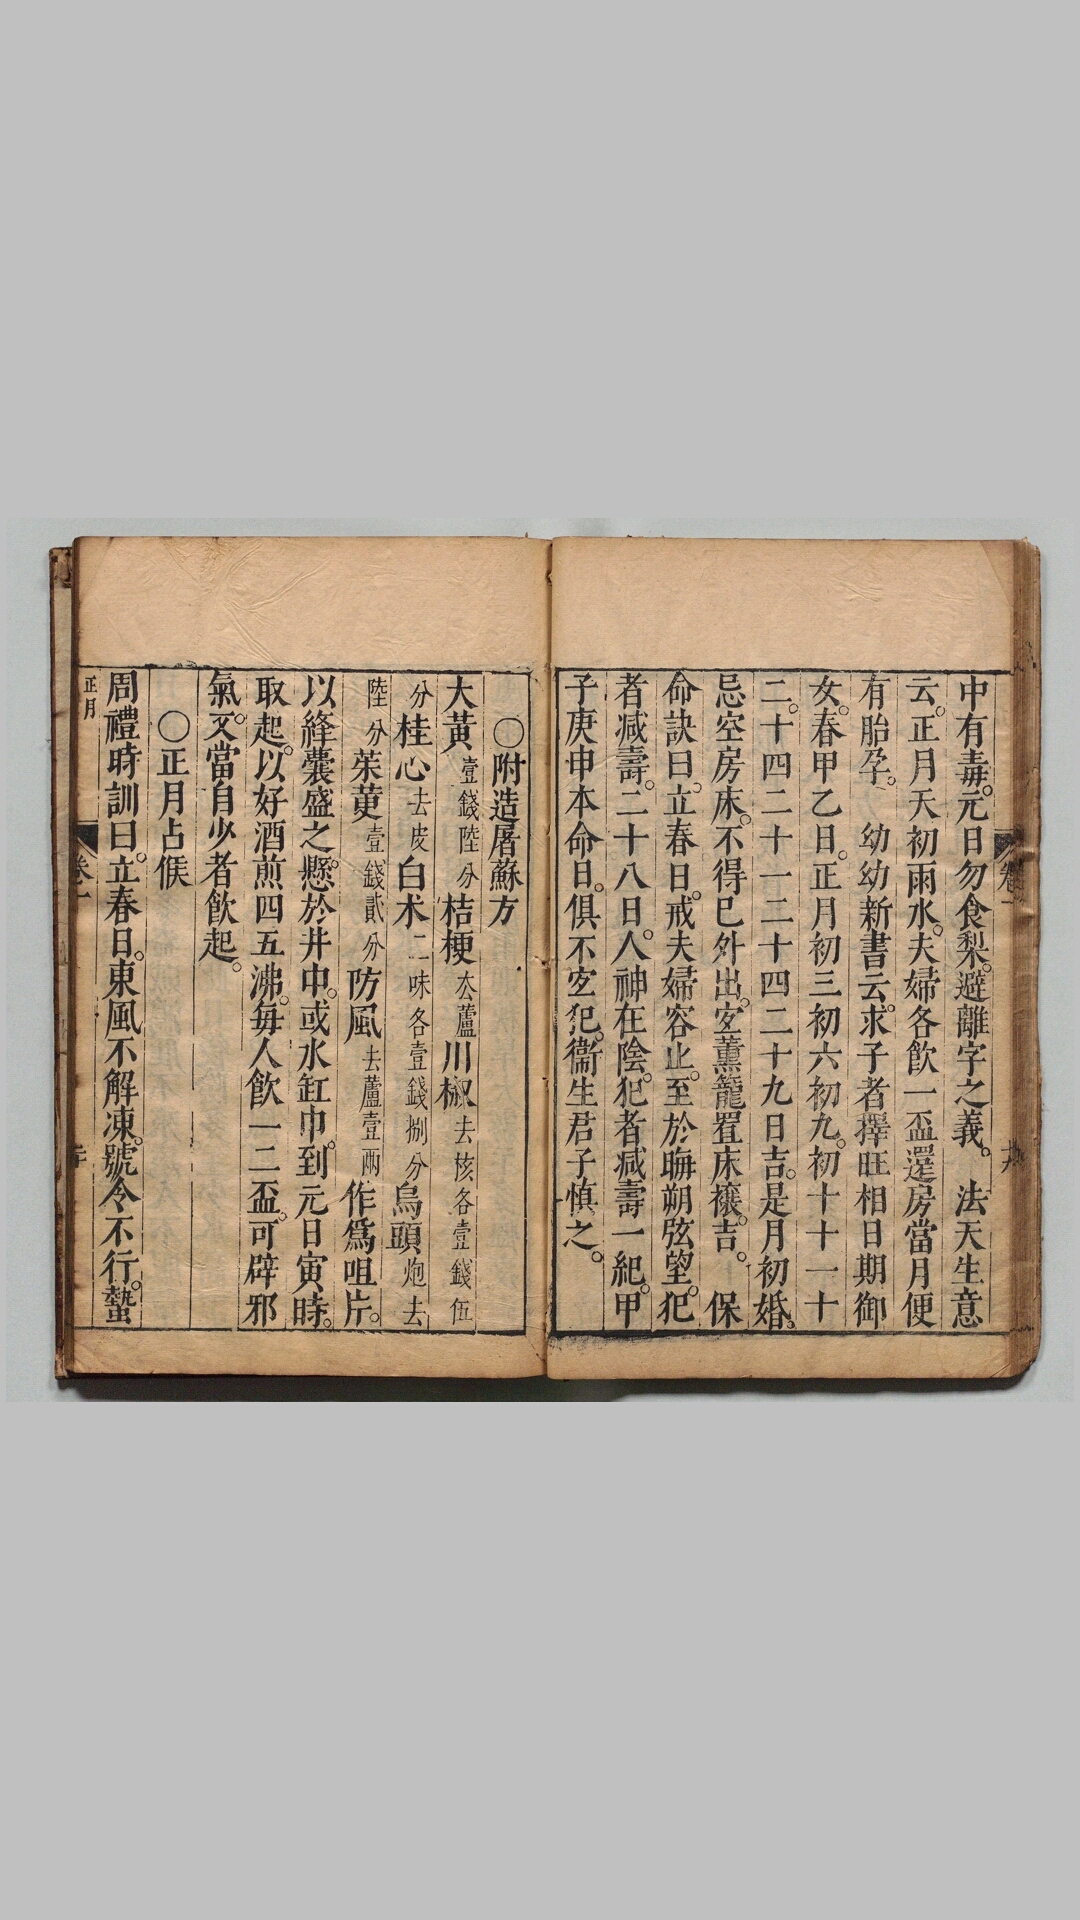 中有毒。元日勿食梨。避離字之義。　法天生意
云。正月天初雨水。夫婦各飲一盃還房當月便
有胎孕。　幼幼新書云。求子者擇旺相日期御
女。春甲乙日。正月初三初六初九。初十十一十
二。十四二十一二十四二十九日吉。是月初婚。
忌空房床。不得已外出。宜薰籠置床禳。吉。　保
命訣曰。立春日。戒夫婦容止。至於晦朔弦望。犯
者減壽。二十八日。人神在陰。犯者減壽一紀。甲
子庚申本命日。俱不宜犯。衞生君子慎之。
〇附造屠蘇方
大黃壹錢陸分桔梗去蘆川椒去核各壹錢伍
分桂心去皮白术二味各壹錢捌分烏頭炮去
陸分茱萸壹錢貳分防風去蘆壹兩作爲咀片。
以絳囊盛之。懸於井中。或水缸巾。到元日寅時。
取起。以好酒煎四五沸。每人飲一二盃。可辟邪
氣。又當自少者飲起。
〇正月占候
周禮時訓曰。立春日。東風不解凍。號令不行。蟄
正月
卷一